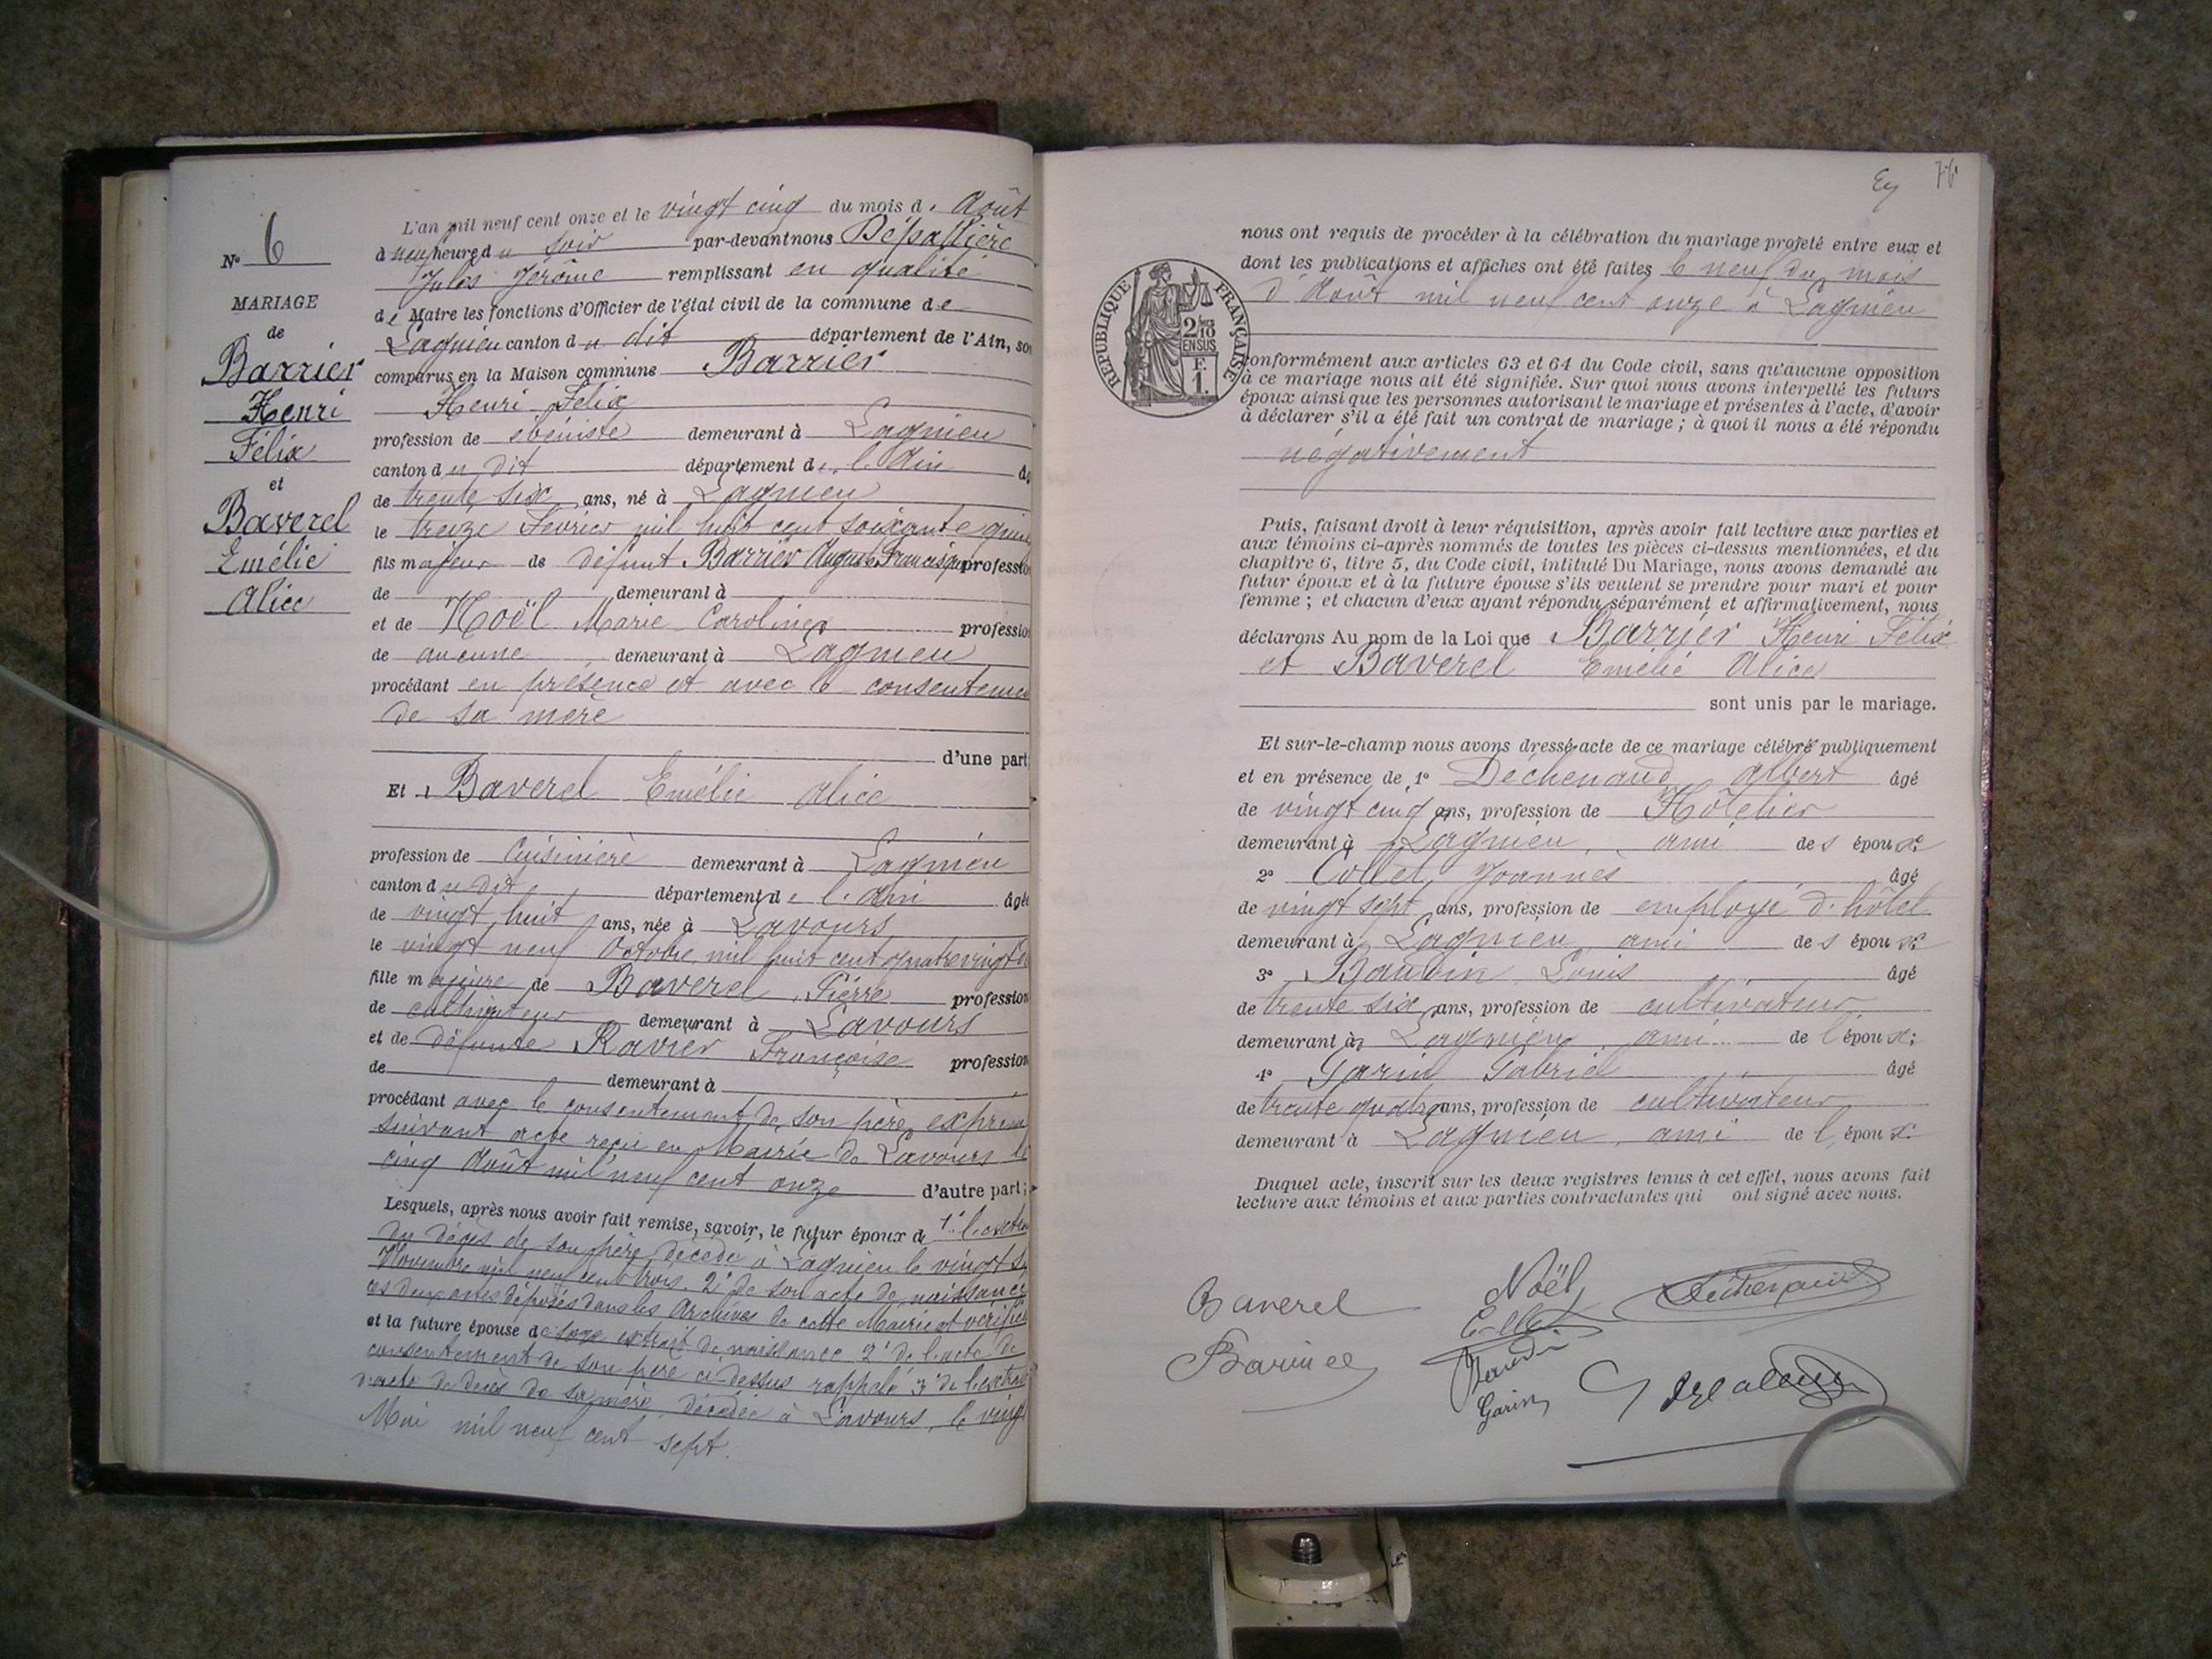 N° 6
MARIAGE
de
Barrier
Henri
Félix
et
Baverel
Emélie
Alice
L'an mil neuf cent onze et le vingt cinq du mois d' Août
à neuf heures du soir par-devant nous Dépallière
Jules Jérôme remplissant en qualité
de Maire les fonctions d'Officier de l'état civil de la commune de
Lagnieu canton du dit département de l'Ain, son
comparus en la Maison commune Barrier
Henri Félix
profession de ébéniste demeurant à Lagnieu
canton du dit département de l'Ain
de trente six ans, né à Lagnieu
le treize Février mil huit cent soixante quin
fils majeur de défunt Barrier Auguste Francisque profession
de demeurant à
et de Noël Marie Caroline profession
de aucune demeurant à Lagnieu
procédant en présence et avec le consenteme
de sa mère
d'une part
Et Baverel Emélie Alice
profession de Cuisinière demeurant à Lagnieu
canton du dit département de l'Ain âgée
de vingt huit ans, née à Lavours
le vingt neuf Octobre mil huit cent quatre vingt
fille majeure de Baverel Pierre profession
de cultivateur demeurant à Lavours
et de défunte Ravier Françoise profession
de demeurant à
procédant avec le consentement de son père exprimé
suivant acte reçu en Mairie de Lavours le
cinq Août mil neuf cent onze d'autre part;
Lesquels, après nous avoir fait remise, savoir, le futur époux de 1° l'extra
du décès de son père décédé à Lagnieu le vingt
Novembre mil neuf cent trois. 2° de son acte de naissance
ces deux actes déposés dans les Archives de cette Mairie et vérifiés
et la future épouse de son extrait de naissance 2° de l'acte de
consentement de son père ci-dessus rappelé 3° de l'extrait
d'acte de décès de sa mère décédée à Lavours, le vingt
Mai mil neuf cent sept.
76
nous ont requis de procéder à la célébration du mariage projeté entre eux et
dont les publications et affiches ont été faites le neuf du mois
d'Août mil neuf cent onze à Lagnieu
REPUBLIQUE FRANÇAISE
2/10
EN SUS
F.
1.
conformément aux articles 63 et 64 du Code civil, sans qu'aucune opposition
à ce mariage nous ait été signifiée. Sur quoi nous avons interpellé les futurs
époux ainsi que les personnes autorisant le mariage et présentes à l'acte, d'avoir
à déclarer s'il a été fait un contrat de mariage ; à quoi il nous a été répondu
négativement
Puis, faisant droit à leur réquisition, après avoir fait lecture aux parties et
aux témoins ci-après nommés de toutes les pièces ci-dessus mentionnées, et du
chapitre 6, titre 5, du Code civil, intitulé Du Mariage, nous avons demandé au
futur époux et à la future épouse s'ils veulent se prendre pour mari et pour
femme ; et chacun d'eux ayant répondu séparément et affirmativement, nous
déclarons Au nom de la Loi que Barrier Henri Félix
et Baverel Emélie Alice
sont unis par le mariage.
Et sur-le-champ nous avons dressé acte de ce mariage célébré publiquement
et en présence de 1° Déchenaud Albert âgé
de vingt cinq ans, profession de Hôtelier
demeurant à Lagnieu, ami des époux
2° Collet Joannès âgé
de vingt sept ans, profession de employé d'hôtel
demeurant à Lagnieu, ami des époux
3° Baudin Louis âgé
de trente six ans, profession de cultivateur
demeurant à Lagnieu, ami de l'époux;
4° Garin Gabriel âgé
de trente quatre ans, profession de cultivateur
demeurant à Lagnieu, ami de l'époux
Duquel acte, inscrit sur les deux registres tenus à cet effet, nous avons fait
lecture aux témoins et aux parties contractantes qui ont signé avec nous.
Baverel
Noël
Déchenaud
Collet
Barrier
Baudin
Garin